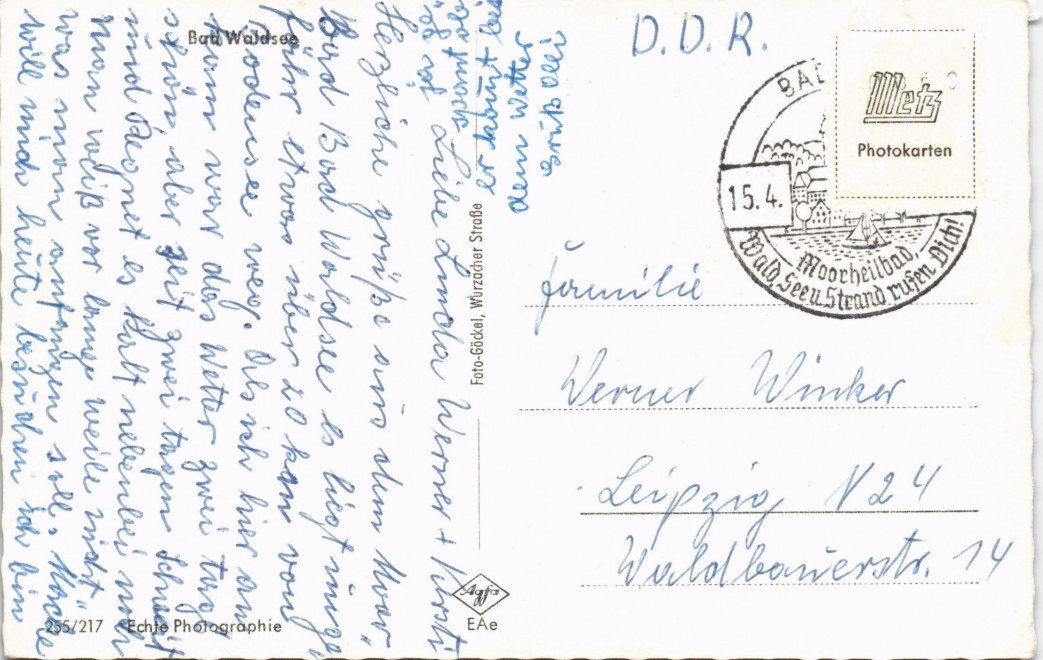 Bad Waldsee
D.D.R.
BAD
15.4.
Moorheilbad,
Wald, See u. Strand rufen Dich!
Metz
Photokarten
Liebe Linda Werner + Kersti
Herzliche grüße aus dem Moor"
Bad Bad Waldsee es liegt unge
fähr etwas über 20 km von
Bodensee weg. Als ich hier an
kam war das Wetter zwei tage
schön aber seit zwei tagen Schneit
und Regnet es Kalt nebenbei noch
man weiß vor langer weile nicht
was man anfangen soll.
will mich heute besuchen ich bin
dem wetter
Familie
Werner Winker
Leipzig N24
Waldbauerstr. 14
Foto-Göckel, Wurzacher Straße
Agfa
EAe
255/217 Echte Photographie